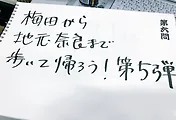 梅田から
地元奈良まで
歩いて帰ろう!第5弾
第六問